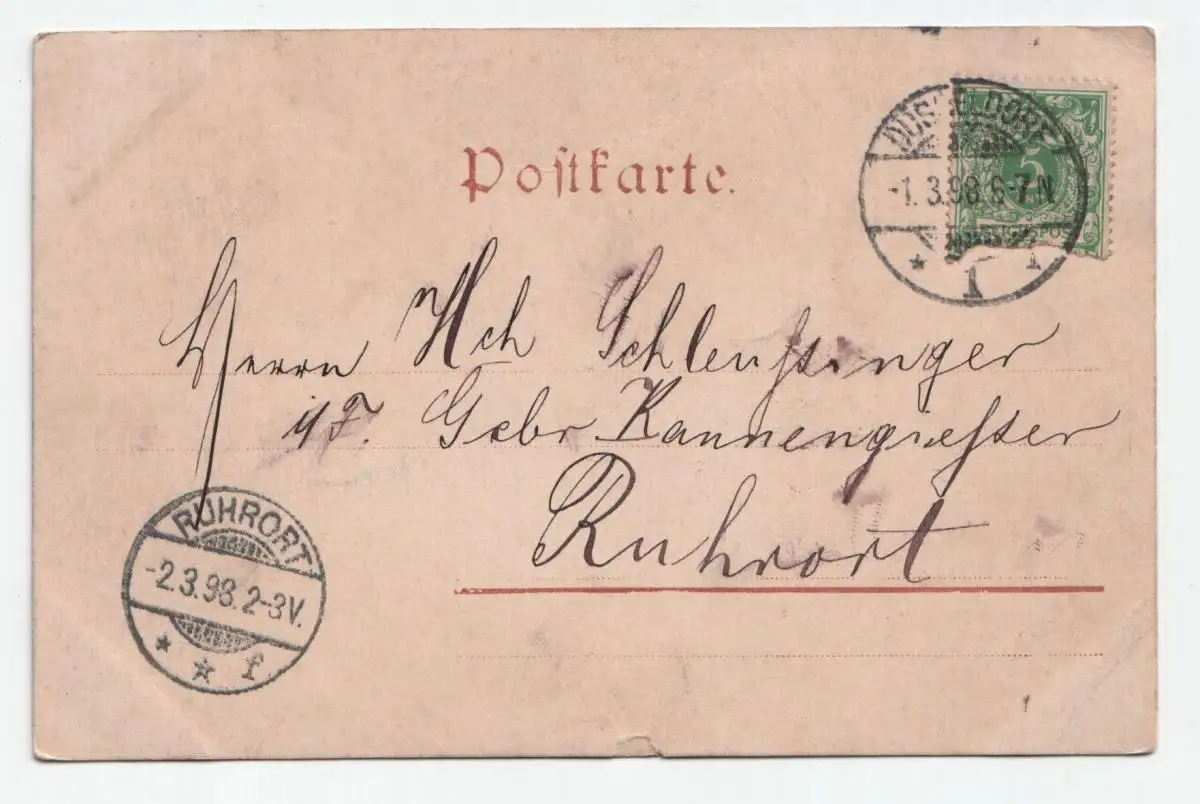 Postkarte.
DÜSSELDORF
-1.3.98.6-7N
* 1 1
5
REICHSPOST
Herrn Hch Schleussinger
Gebr Kannengiesser
Ruhrort
RUHRORT
-2.3.98.2-3V.
* * f